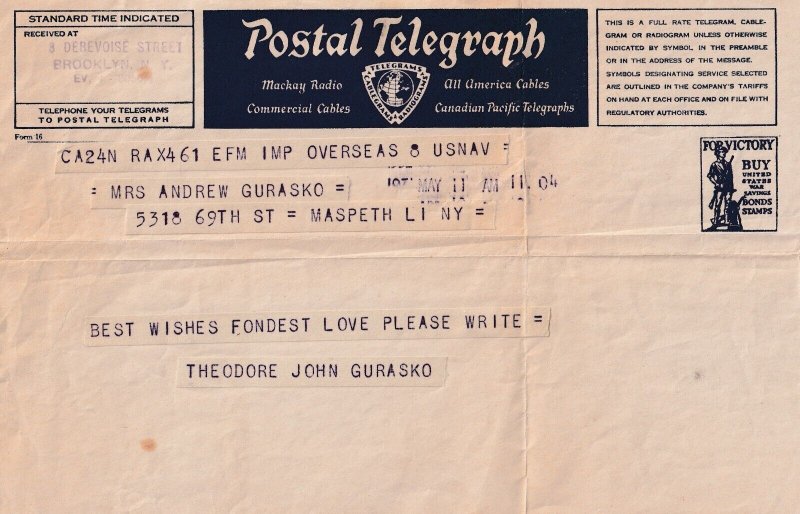 STANDARD TIME INDICATED
RECEIVED AT
8 DEREVOISE STREET
BROOKLYN, N. Y.
EV.
TELEPHONE YOUR TELEGRAMS
TO POSTAL TELEGRAPH
Form 16
Postal Telegraph
Mackay Radio
All America Cables
Commercial Cables
Canadian Pacific Telegraphs
TELEGRAMS
CABLEGRAMS
RADIOGRAMS
THIS IS A FULL RATE TELEGRAM, CABLE-
GRAM OR RADIOGRAM UNLESS OTHERWISE
INDICATED BY SYMBOL IN THE PREAMBLE
OR IN THE ADDRESS OF THE MESSAGE.
SYMBOLS DESIGNATING SERVICE SELECTED
ARE OUTLINED IN THE COMPANY'S TARIFFS
ON HAND AT EACH OFFICE AND ON FILE WITH
REGULATORY AUTHORITIES.
FOR VICTORY
BUY
UNITED
STATES
WAR
SAVINGS
BONDS
STAMPS
CA24N RAX461 EFM IMP OVERSEAS 8 USNAV =
= MRS ANDREW GURASKO =
MAY 11 AM 11 04
5318 69TH ST = MASPETH LI NY =
BEST WISHES FONDEST LOVE PLEASE WRITE =
THEODORE JOHN GURASKO